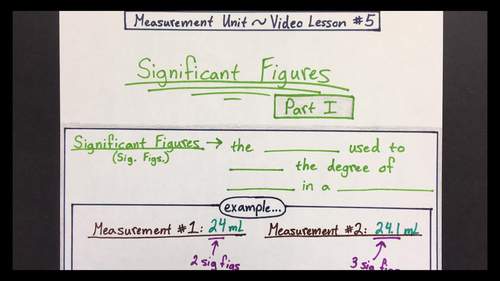 Measurement Unit ~ Video Lesson #5
Significant Figures
Part I
Significant Figures → the ________ used to
(Sig. Figs.) ______ the degree of
________ in a ____________
example...
Measurement #1: 24 mL Measurement #2: 24.1 mL
2 sig figs 3 sig figs